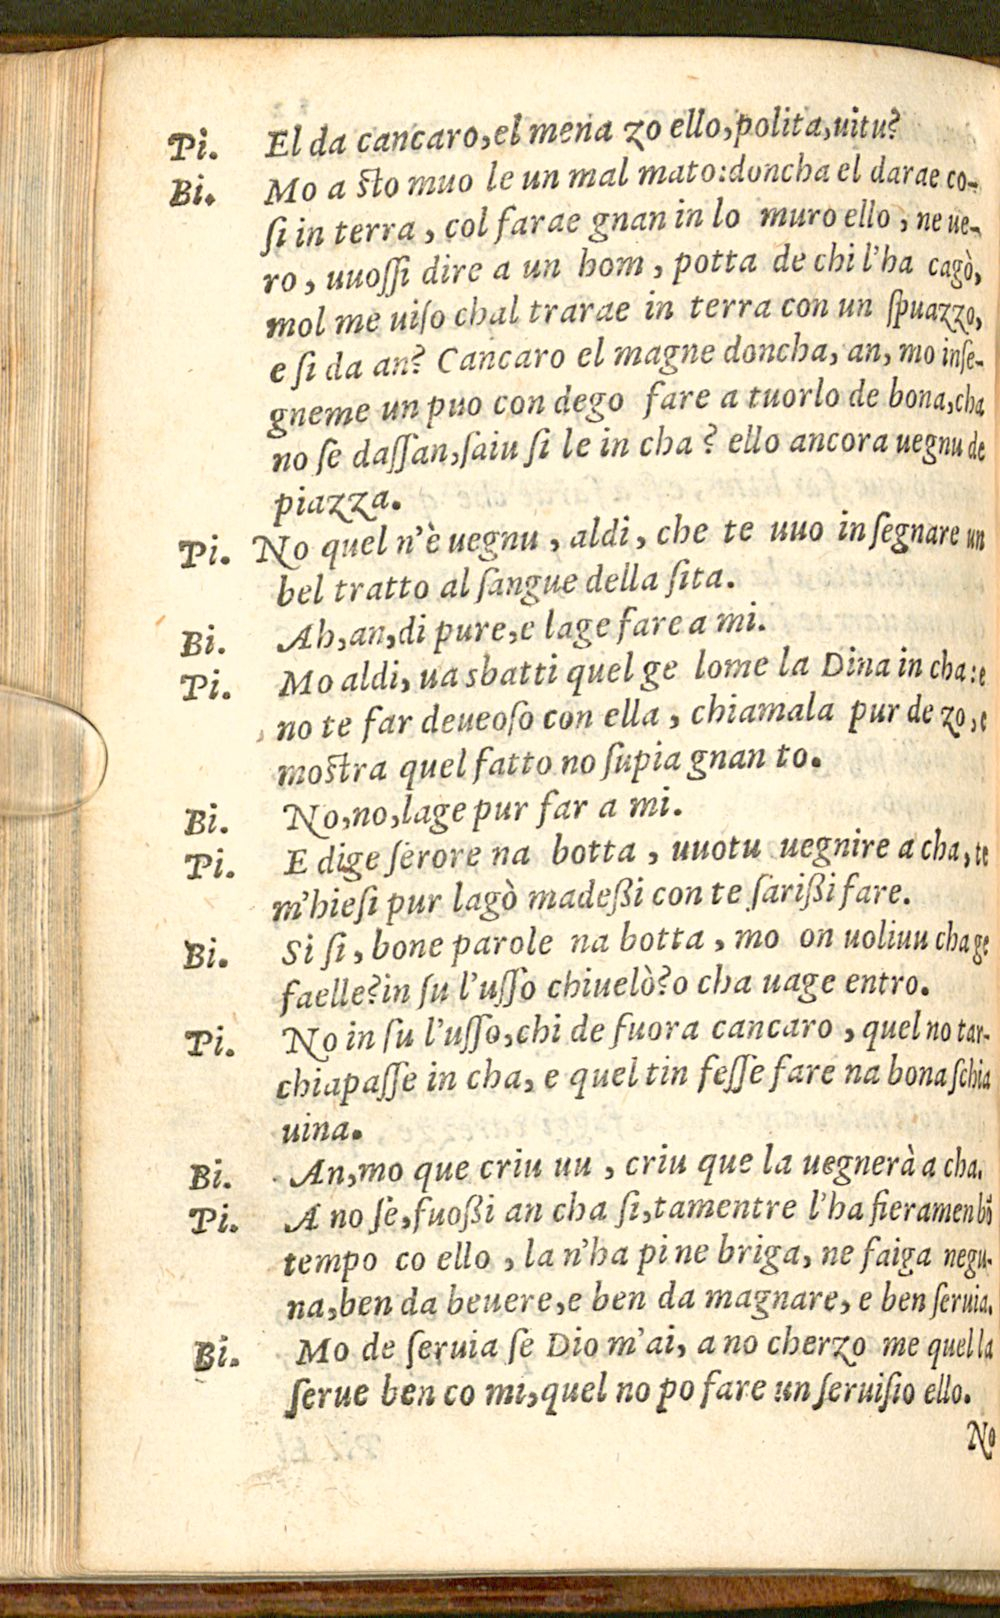 Pi. El da cancaro, el mena zo ello, polita, uitu?
Bi. Mo a sto muo le un mal mato: doncha el darae co-
ſi in terra, col farae gnan in lo muro ello, ne ue-
ro, uuoſſi dire a un hom, potta de chi l'ha cagò,
mol me uiſo chal trarae in terra con un ſpuazzo,
e ſi da an? Cancaro el magne doncha, an, mo inſe-
gneme un puo con dego fare a tuorlo de bona, cha
no ſe daſſan, ſaiu ſi le in cha? ello ancora uegnu de
piazza.
Pi. No quel n'è uegnu, aldi, che te uuo inſegnare un
bel tratto al ſangue della ſita.
Bi. Ah, an, di pure, e lage fare a mi.
Pi. Mo aldi, ua sbatti quel ge lome la Dina in cha: e
no te far deueoſo con ella, chiamala pur de zo, e
mostra quel fatto no ſupia gnan to.
Bi. No, no, lage pur far a mi.
Pi. E dige ſerore na botta, uuotu uegnire a cha, te
m'hieſi pur lagò madeßi con te ſarißi fare.
Bi. Si ſi, bone parole na botta, mo on uoliuu cha ge
faelle? in ſu l'uſſo chiuelò? o cha uage entro.
Pi. No in ſu l'uſſo, chi de fuora cancaro, quel no tar-
chiapaſſe in cha, e quel tin feſſe fare na bona ſchia
uina.
Bi. An, mo que criu uu, criu que la uegnerà a cha.
Pi. A no ſè, fuoßi an cha ſi, tamentre l'ha fieramen bõ
tempo co ello, la n'ha pi ne briga, ne faiga negu-
na, ben da beuere, e ben da magnare, e ben ſeruia.
Bi. Mo de ſeruia ſe Dio m'ai, a no cherzo me quel la
ſerue ben co mi, quel no po fare un ſeruiſio ello.
No